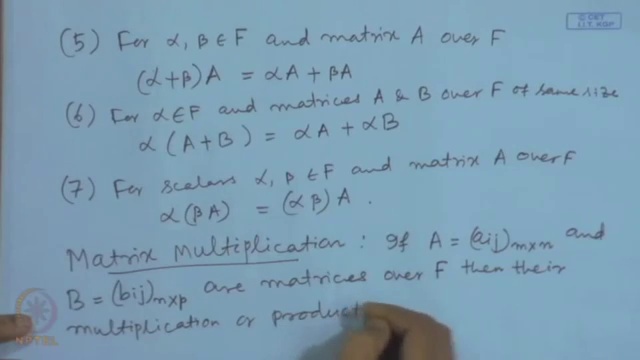 © CET
I.I.T. KGP
(5) For α, β ∈ F and matrix A over F
(α+β)A = αA + βA
(6) For α∈F and matrices A & B over F of same size
α (A+B) = αA + αB
(7) For scalars α, β ∈ F and matrix A over F
α(βA) = (αβ)A.
Matrix Multiplication : If A = (aij)m×n and
B = (bij)n×p are matrices over F then their
multiplication or product
NPTEL